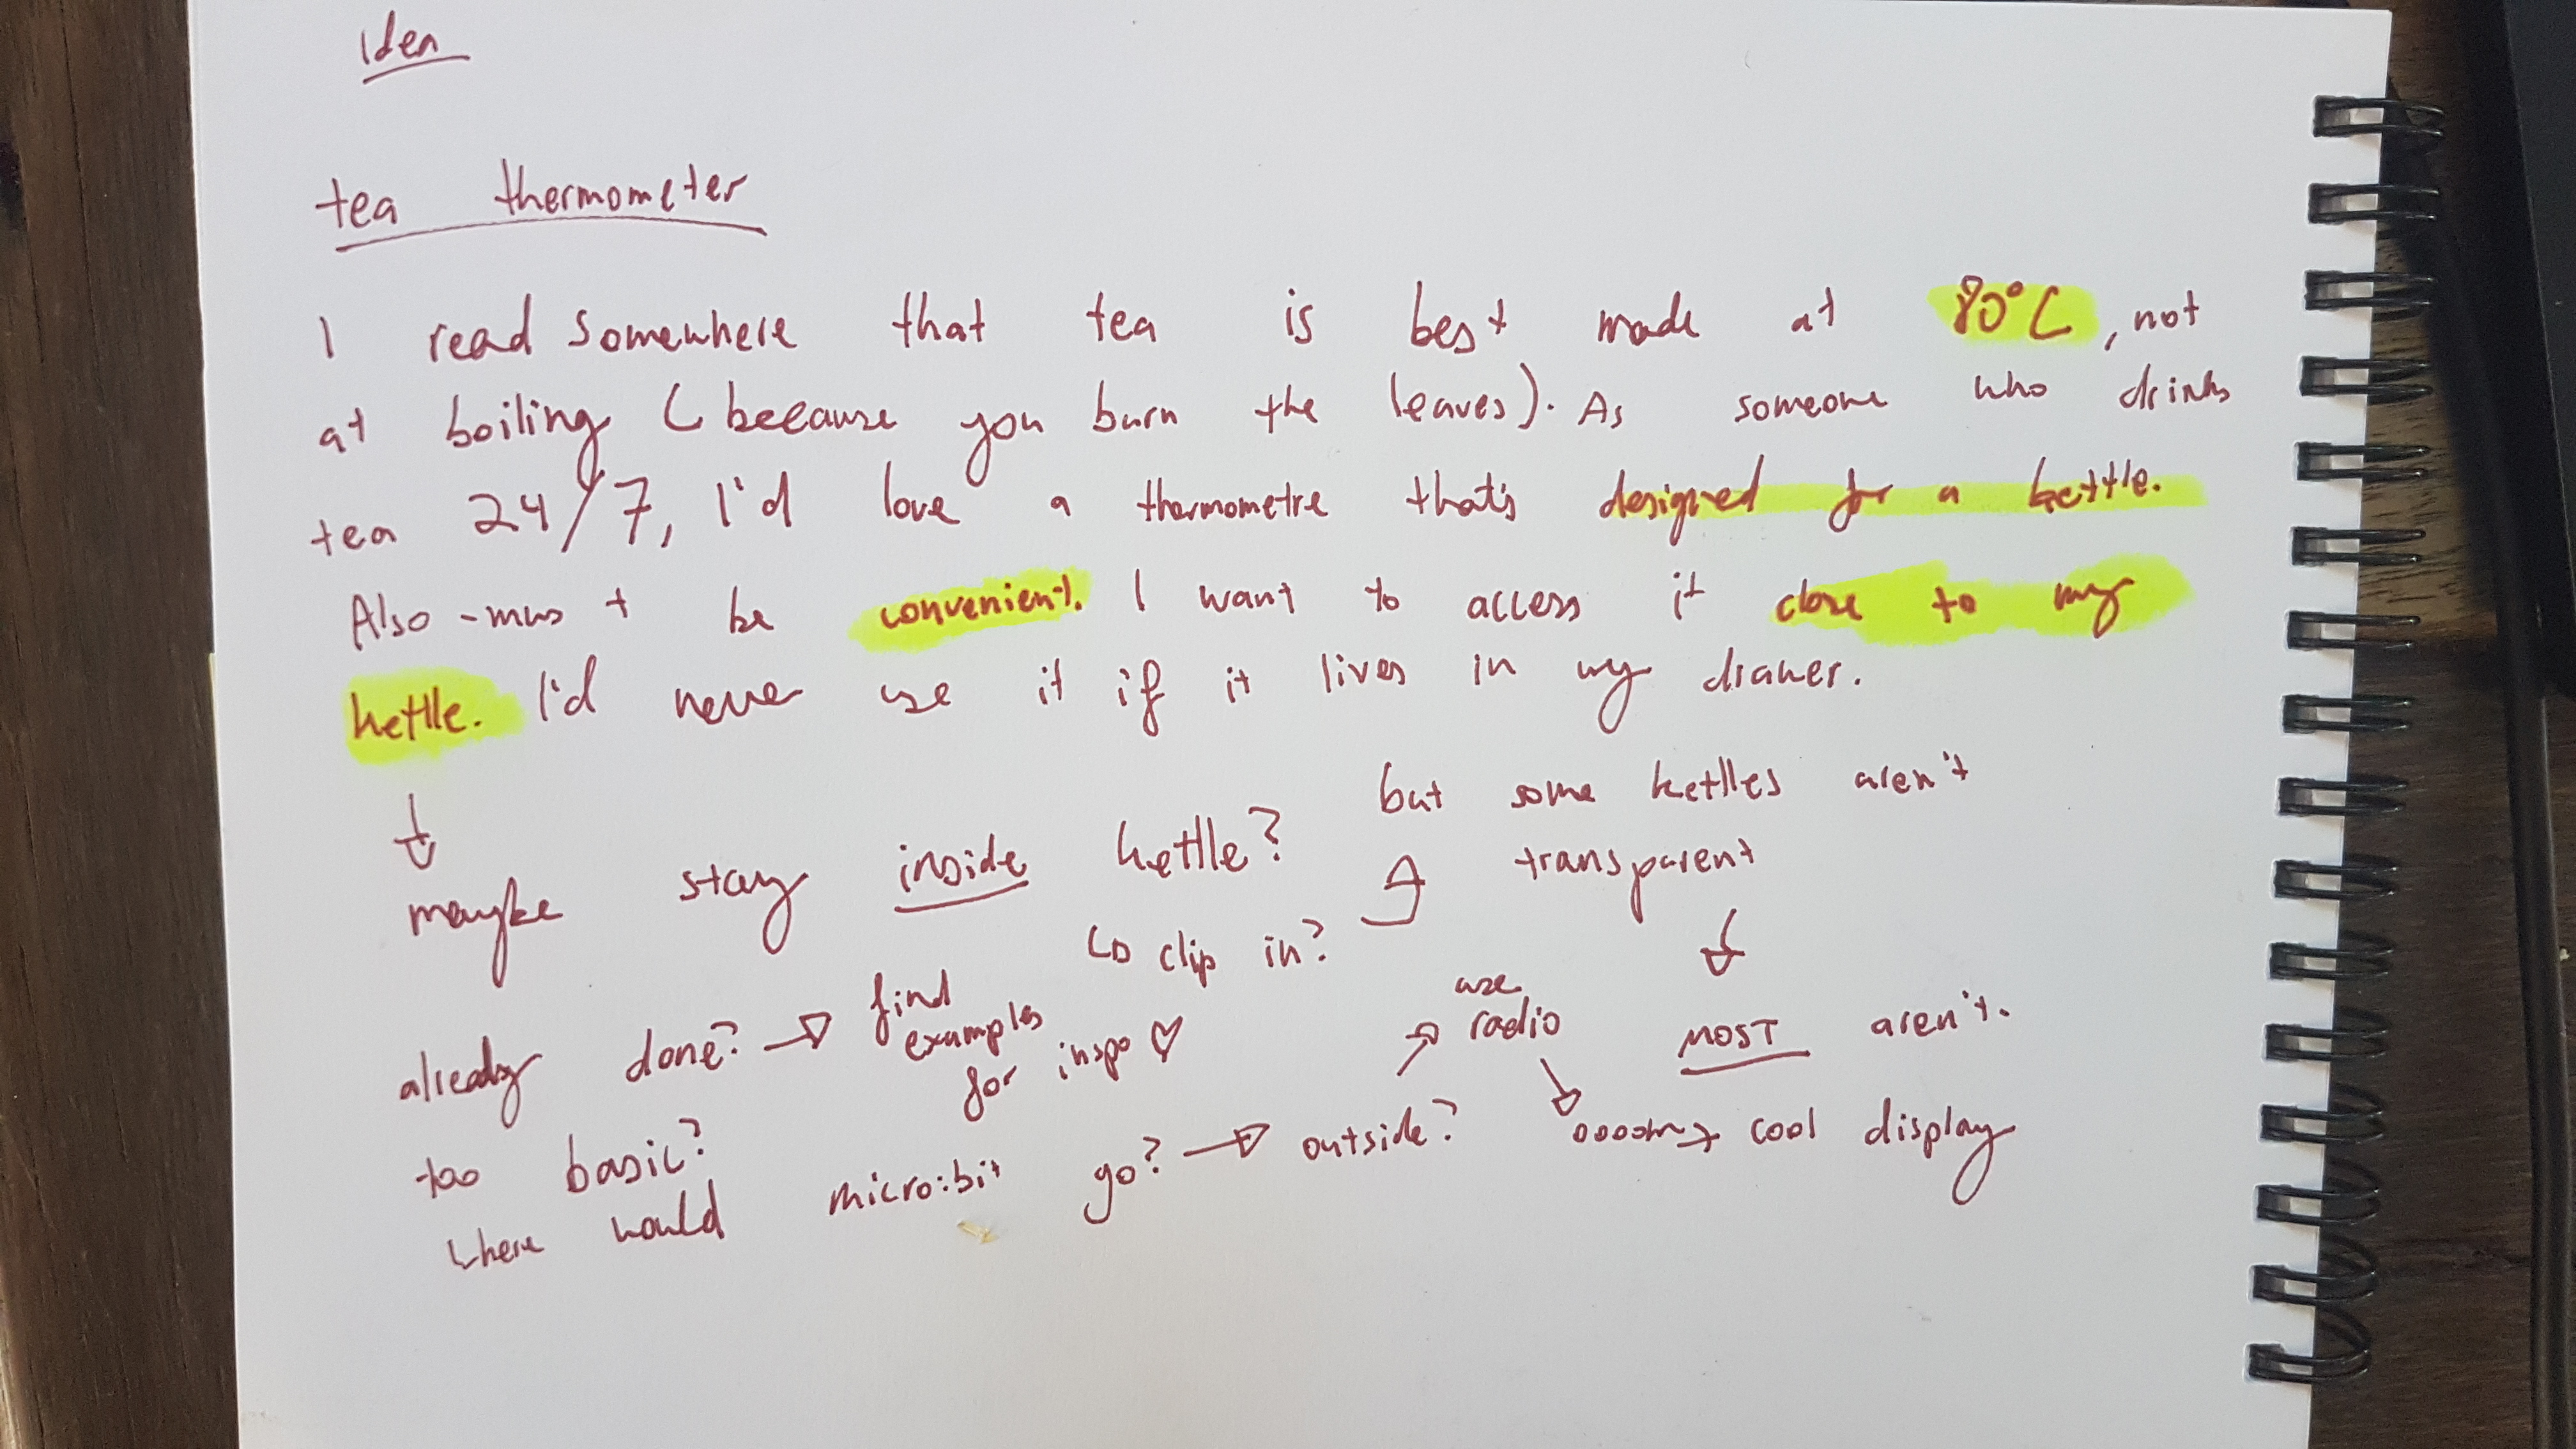 Idea
tea thermometer
I read somewhere that tea is best made at 80°C, not
at boiling (because you burn the leaves). As someone who drinks
tea 24/7, I'd love a thermometre that's designed for a kettle.
Also - mus + be convenient. I want to access it close to my
kettle. I'd never use it if it lives in my drawer.
but some kettles aren't
transparent
↓ maybe stay inside kettle?
↳ clip in?
↓ MOST aren't.
already done? → find examples
for inspo
use radio
too basic?
where would micro:bit go? → outside?
ooooh → cool display